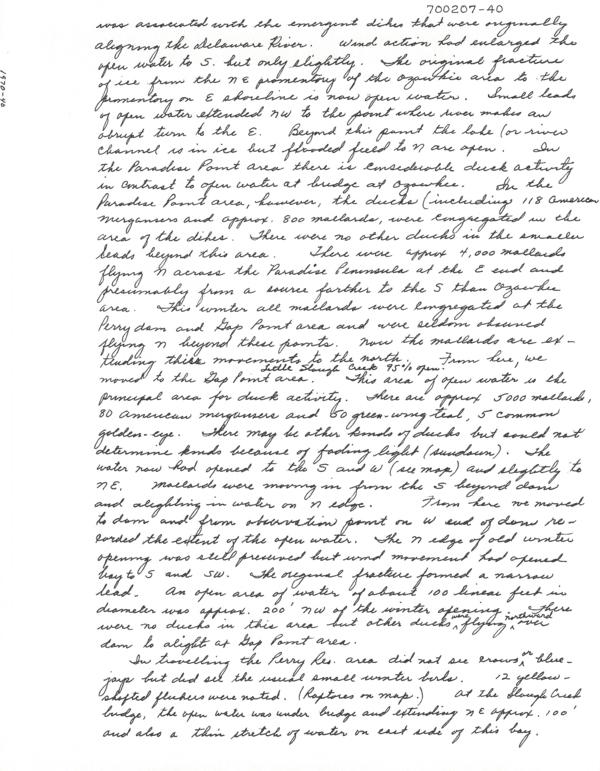 700207-40
1970-40
was associated with the emergent dikes that were originally
aligning the Delaware River. Wind action had enlarged the
open water to S. but only slightly. The original fracture
of ice from the NE promentory of the Ozawkie area to the
promentory on E shoreline is now open water. Small leads
of open water extended NW to the point where river makes an
abrupt turn to the E. Beyond this point the lake (or river
channel is in ice but flooded field to N are open. In
the Paradise Point area there is considerable duck activity
in contrast to open water at bridge at Ozawkee. In the
Paradise Point area, however, the ducks (including 118 American
mergansers and approx. 800 mallards, were congregated in the
area of the dikes. There were no other ducks in the smaller
leads beyond this area. There were approx 4,000 mallards
flying N across the Paradise Peninsula at the E end and
presumably from a source farther to the S than Ozawkie
area. This winter all mallards were congregated at the
Perry dam and Gap Point area and were seldom observed
flying N beyond these points. Now the mallards are ex-
tending their movements to the north. From here, we
Little Slough Creek 95% open.
moved to the Gap Point area. This area of open water is the
principal area for duck activity. There are approx 5000 mallards,
80 American mergansers and 50 green-wing teal, 5 common
golden-eye. There may be other kinds of ducks but could not
determine kinds because of fading light (sundown). The
water now had opened to the S and W (see map) and slightly to
NE. Mallards were moving in from the S beyond dam
and alighting in water on N edge. From here we moved
to dam and from observation point on W end of dam re-
corded the extent of the open water. The N edge of old winter
opening was still preserved but wind movement had opened
bay to S and SW. The original fracture formed a narrow
lead. An open area of water of about 100 linear feet in
diameter was approx. 200' NW of the winter opening. There
were no ducks in this area but other ducks were flying northward over
dam to alight at Gap Point area.
In travelling the Perry Res. area did not see crows or blue-
jays but did see the usual small winter birds. 12 yellow-
shafted flickers were noted. (Raptores on map.) At the Slough Creek
bridge, the open water was under bridge and extending NE approx. 100'
and also a thin stretch of water on east side of this bay.